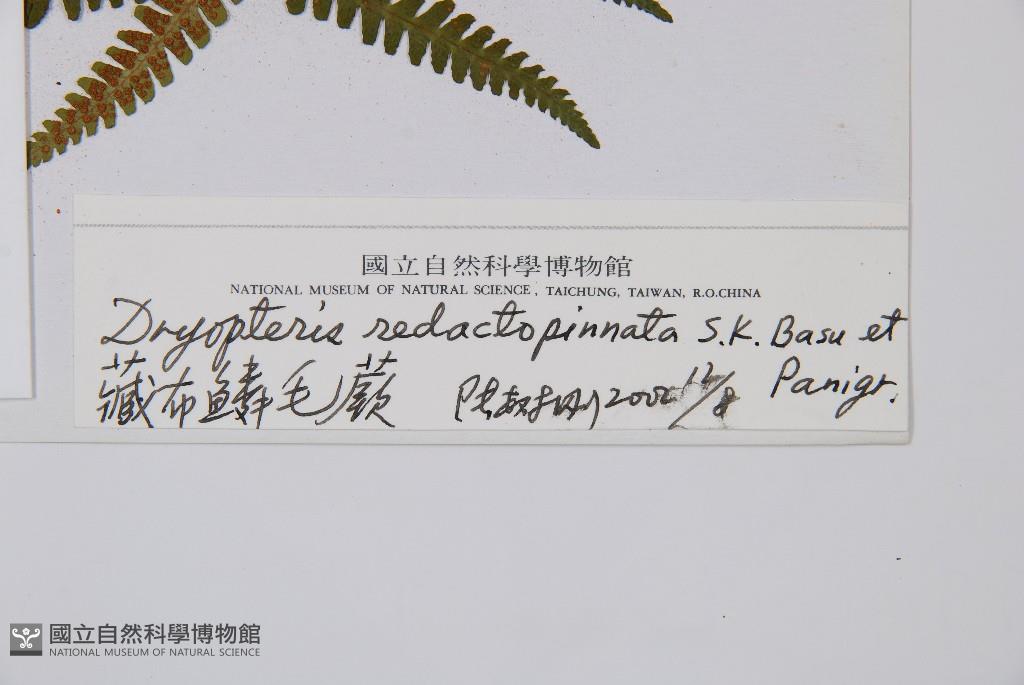 國立自然科學博物館
NATIONAL MUSEUM OF NATURAL SCIENCE, TAICHUNG, TAIWAN, R.O.CHINA
Dryopteris redactopinnata S.K. Basu et
Panigr.
藏布鱗毛蕨 2002 12/8
國立自然科學博物館
NATIONAL MUSEUM OF NATURAL SCIENCE